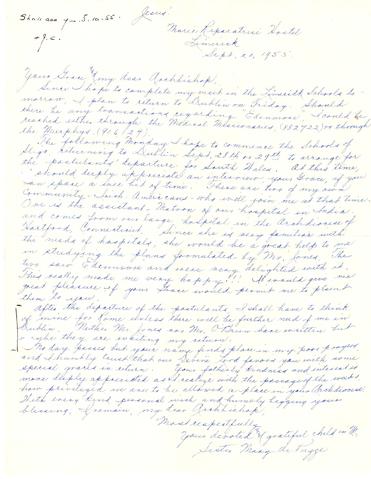 Shall see you 5.10.55.
+ J.C.
Jesus!
Marie Reparatrice Hostel
Limerick
Sept. 20, 1955.
Your Grace, my dear Archbishop,
Since I hope to complete my visit in the Limerick Schools to-
morrow, I plan to return to Dublin on Friday. Should
there be any transactions regarding Edenmore, I could be
reached either through the Medical Missionaries (882722) or through
the Murphys (906129).
The following Monday I hope to commence the Schools of
Sligo, returning to Dublin Sept. 28th or 29th to arrange for
the postulants' departure for South Wales. At this time,
I should deeply appreciate an interview, your Grace, if you
can spare a wee bit of time. There are two of my own
Community – both Americans – who will join me at that time.
One is the assistant Matron of our hospital in India
and comes from our large hospital in the Archdiocese of
Hartford, Connecticut. Since she is so familiar with
the needs of hospitals, she would be a great help to me
in studying the plans formulated by Mr. Jones. The
two saw Edenmore and were very delighted with it.
This really made me very happy!!! It would give me
great pleasure if your Grace would permit me to present
them to you.
After the departure of the postulants I shall have to think
of leaving for Rome unless there will be further need of me in
Dublin. Neither Mr. Jones nor Mr. O'Brien have written but
maybe they are awaiting my return.
No day passes but your name finds place in my poor prayers
and I humbly trust that our Divine Lord favors you with some
special graces in return. Your fatherly kindness and interest is
more deeply appreciated as I realize with the passing of the weeks
how privileged we are to be allowed a place in your Archdiocese.
With every kind personal wish and humbly begging your
blessing, I remain, my dear Archbishop,
Most respectfully,
Your devoted & grateful child in
Sister Mary